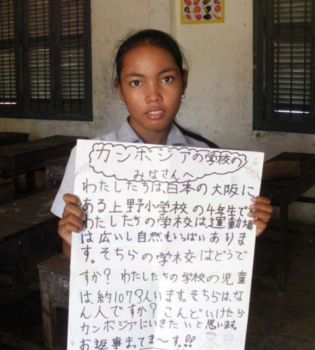 カンボジアの学校の
みなさんへ
わたしたちは、日本の大阪に
ある上野小学校の4年生です
わたしたちの学校は運動場
は広いし自然もいっぱいありま
す。そちらの学校はどうで
すか？わたしたちの学校の児童
は約1079人います。そちらは、な
ん人ですか？こんどいけたら
カンボジアにいきたいと思います。
お返事まってま〜す。!!